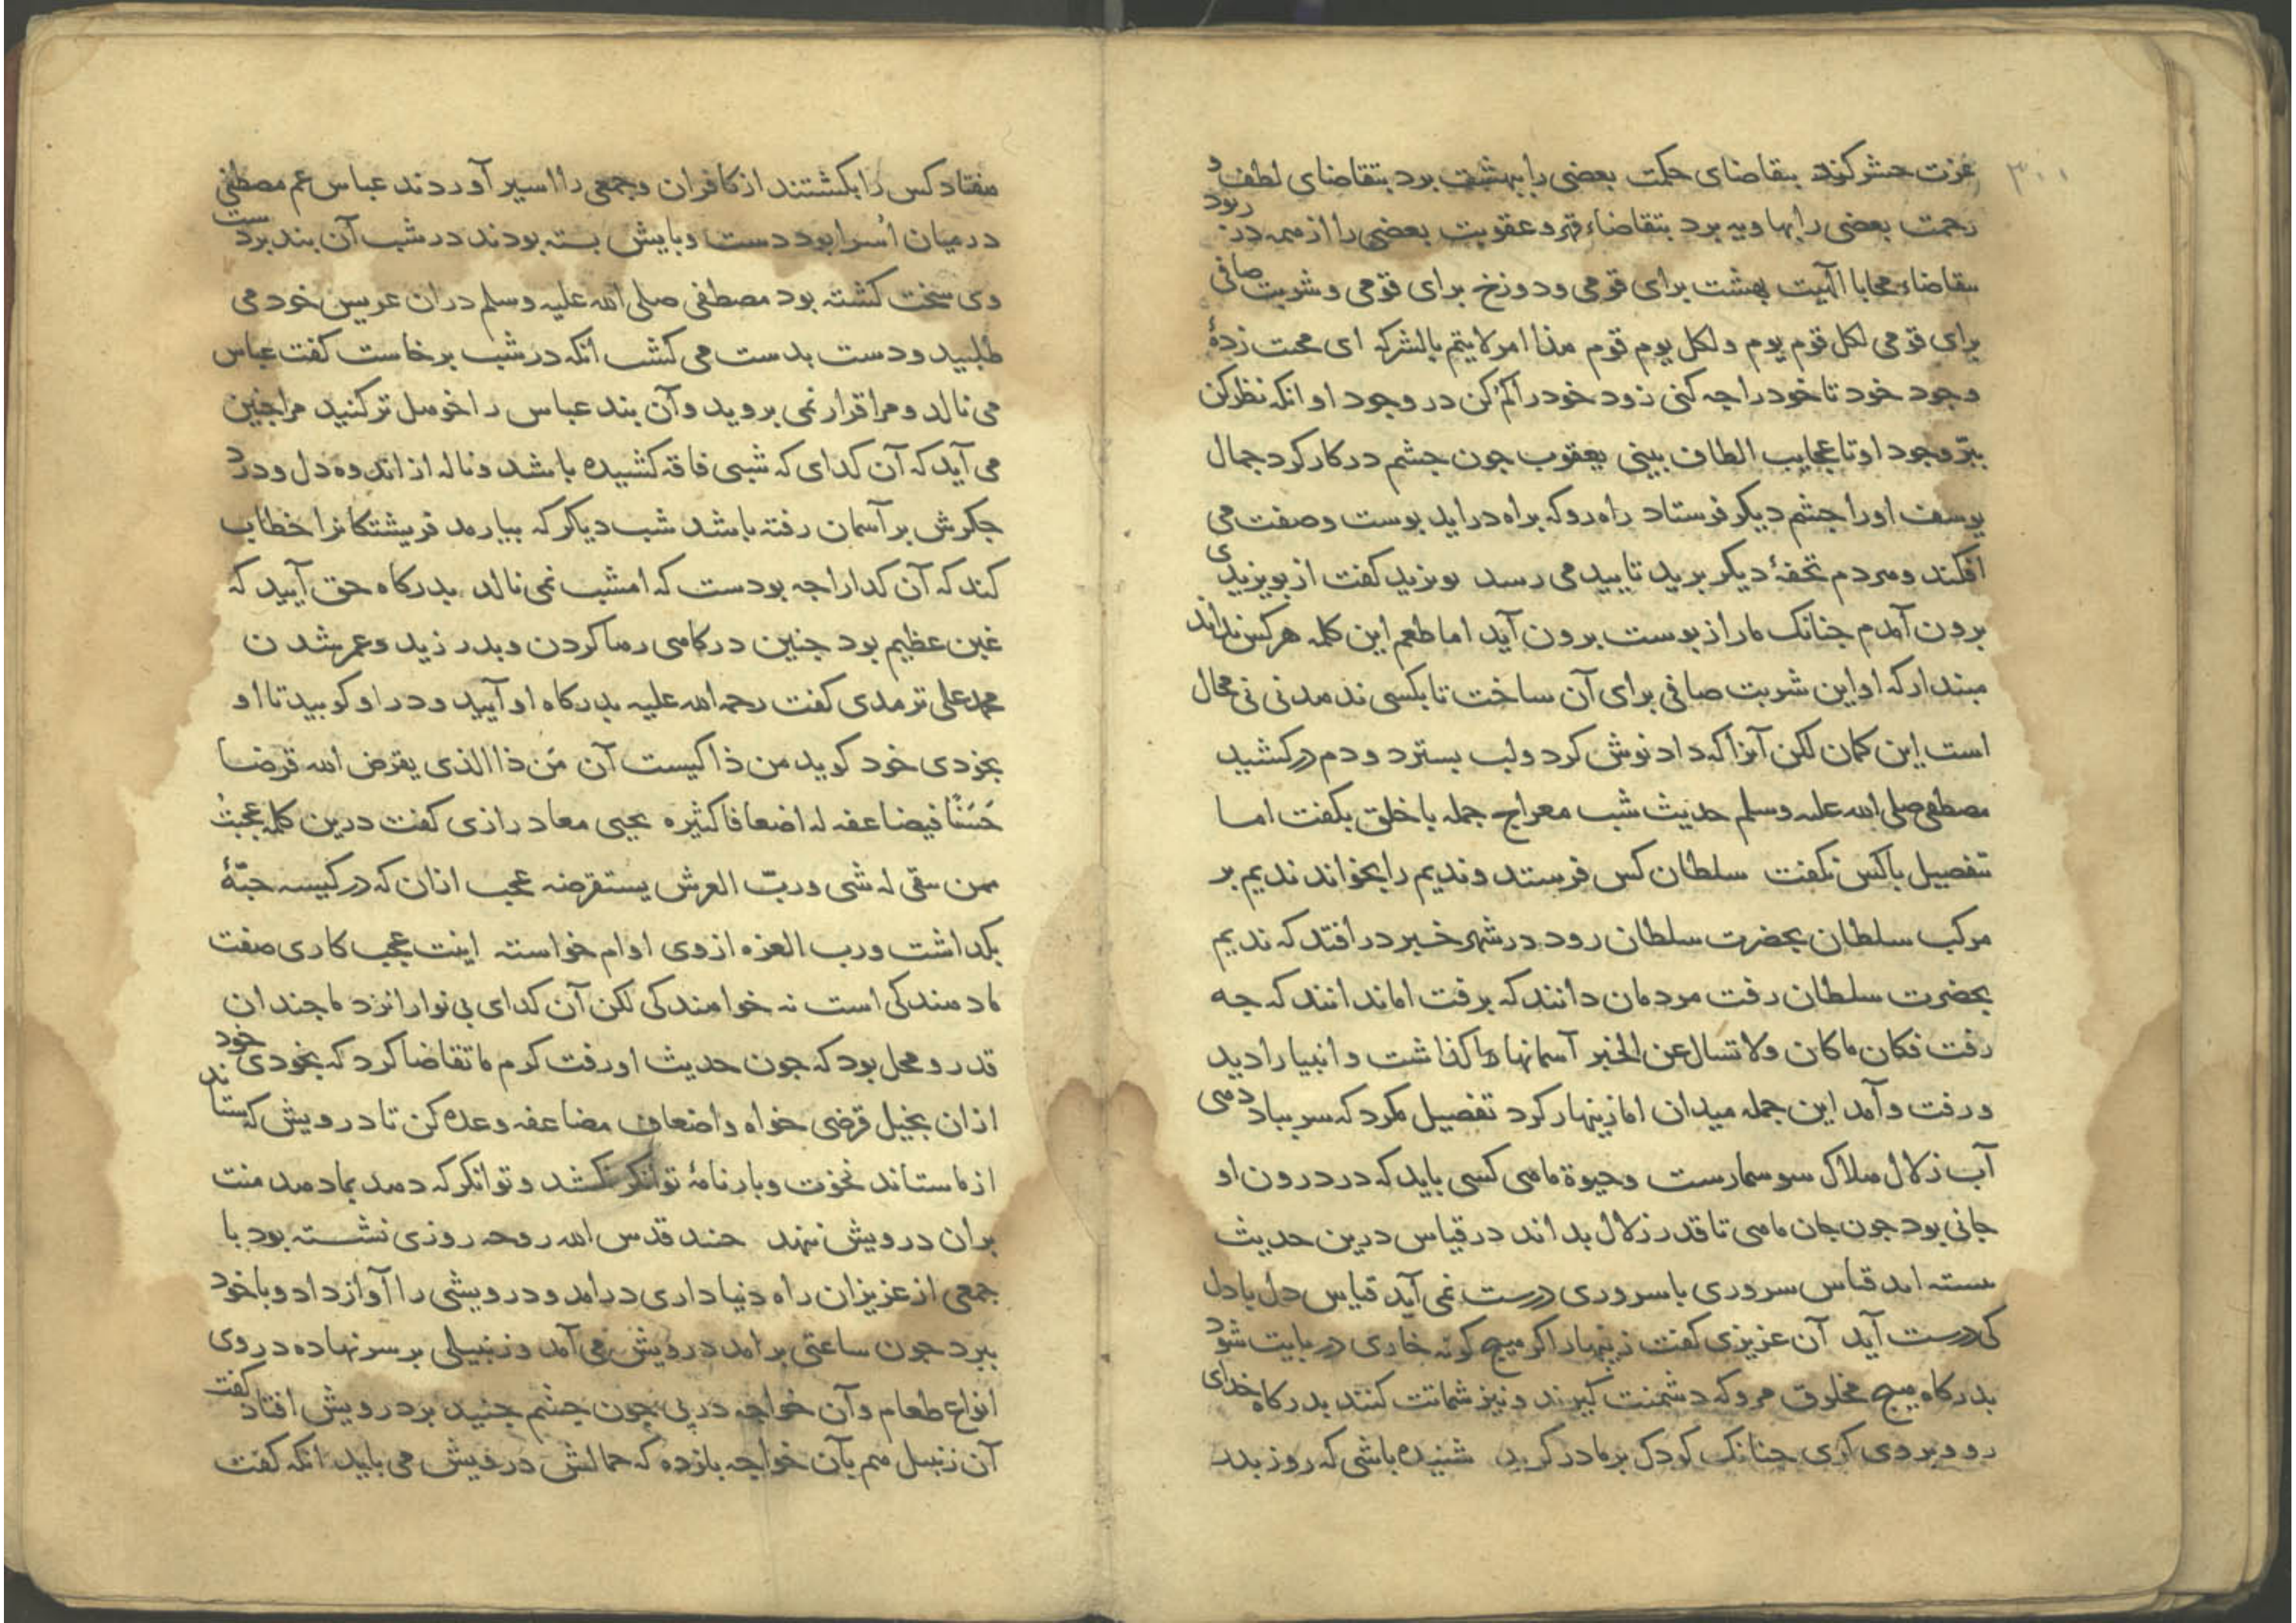 ۳۰۰
عزت حشر کند بتقاضای حکمت بعضی را ببهشت برد بتقاضای لطف و
رحمت بعضی را بهاویه برد بتقاضاء قهر و عقوبت بعضی را از همه در ربود
بتقاضاء محابا الهیت بهشت برای قومی و دوزخ برای قومی و شربت صافی
برای قومی لکل قوم یوم و لکل یوم قوم هذا امر لا یتم بالشرکه ای محنت زدهٔ
وجود خود تا خود را چه کنی زود خود را کم کن در وجود او آنکه نظر کن
ببرّ وجود او تا عجایب الطاف بینی یعقوب جون جشم در کار کرد جمال
یوسف او را جشم دیکر فرستاد راه رو که براه در اید بوست وصفت می
افکند و هر دم تحفهٔ دیکر برید تایید می رسد بویزید کفت از بویزیدی
برون آمدم جنانک مار از بوست برون آید اما طعم این کلمه هر کس نداند
مبندار که او این شربت صافی برای آن ساخت تا بکسی ندهد نی نی محال
است این کمان لکن آنرا که داد نوش کرد و لب بسترد و دم در کشید
مصطفی صلی الله علیه وسلم حدیث شب معراج جمله با خلق بکفت اما
تفصیل با کس نکفت سلطان کس فرستد و ندیم را بخواند ندیم بر
مرکب سلطان بحضرت سلطان رود در شهر خبر در افتد که ندیم
بحضرت سلطان رفت مردمان دانند که برفت اما ندانند که جه
رفت فکان ما کان ولا تسال عن الخبر آسمانها رها کذاشت و انبیا را دید
و رفت و آمد این جمله میدان اما زینهار کرد تفصیل مکرد که سر بباد دهی
آب زلال هلاک سوسمارست و حیوة ماهی کسی باید که در درون او
جانی بود جون جان ماهی تا قدر زلال بداند در قیاس درین حدیث
بسته اند قیاس سروری با سروری درست نمی آید قیاس دل با دل
کی درست آید آن عزیزی کفت زینهار اکر هیج کونه خاری در بایت شود
بدرکاه هیج مخلوق مرو که دشمنت کیرند و نیز شماتت کنند بدرکاه خدای
رو و بر وی کری جنانک کودک بر مادر کرید شنیده باشی که روز بدر
هفتاد کس را بکشتند از کافران و جمعی را اسیر آوردند عباس عم مصطفی
در میان اُسرا بود دست و بایش بسته بودند در شب آن بند بر دست
وی سخت کشته بود مصطفی صلی الله علیه وسلم در ان عریس خود می
طلبید و دست بدست می کشب انکه در شب برخاست کفت عباس
می نالد و مرا قرار نمی بروید و آن بند عباس را خوهل تر کنید مرا جنین
می آید که آن کدای که شبی فاقه کشیده باشد و ناله از اندوه دل و درد
جکرش بر آسمان رفته باشد شب دیکر که بیارمد فریشتکانرا خطاب
کند که آن کدا را جه بودست که امشب نمی نالد بدرکاه حق آیید که
غبن عظیم بود جنین درکاهی رها کردن و بدر زید و عمر شدن
محمد علی ترمدی کفت رحمه الله علیه بدرکاه او آیید و در او کوبید تا او
بخودی خود کوید من ذا کیست آن مَن ذا الذی یقرض الله قرضا
حَسَنًا فیضاعفه له اضعافا کثیره یحیی معاد رازی کفت درین کلمه عجبتُ
ممن بقی له شی وربّ العرش یستقرضه عجب ازان که در کیسه حبّهٔ
بکداشت و رب العزه از وی اوام خواسته اینت عجب کاری صفت
ما دهندکی است نه خواهندکی لکن آن کدای بی نوا را نزد ما جندان
قدر و محل بود که جون حدیث او رفت کرم ما تقاضا کرد که بخودی خود
ازان بخیل قرضی خواه و اضعاف مضاعفه وعده کن تا درویش که ستاند
از ما ستاند نخوت و بارنامهٔ توانکر نکشد و توانکر که دهد بما دهد منت
بران درویش ننهد جنید قدس الله روحه روزی نشسته بود با
جمعی از عزیزان راه دنیاداری درامد و درویشی را آواز داد و با خود
ببرد جون ساعتی برامد درویش می آمد و زنبیلی بر سر نهاده در وی
انواع طعام و آن خواجه در پی جون جشم جنید بر درویش افتاد کفت
آن زنبیل هم بآن خواجه باز ده که حمالش درویش می باید انکه کفت